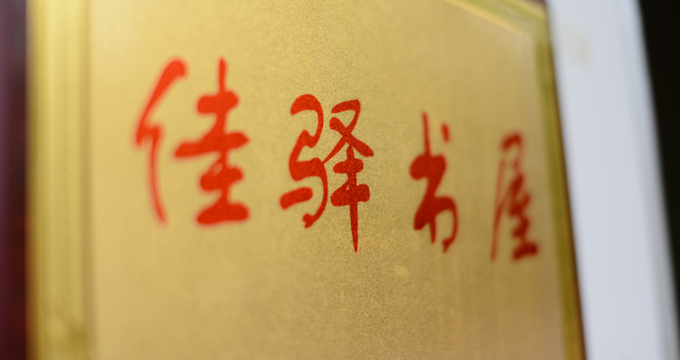 佳驿书屋